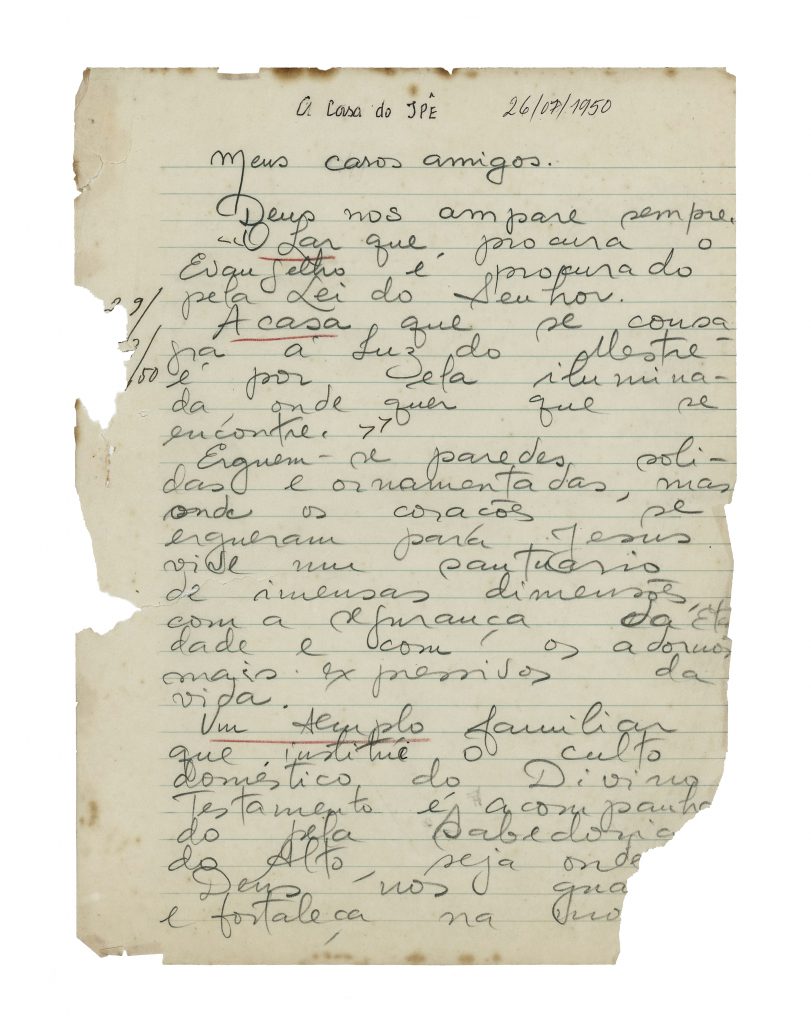 A Casa do IPÊ 26/07/1950
Meus caros amigos.
Deus nos ampare sempre.
«O Lar que procura o
Evangelho é procurado
pela Lei do Senhor.
29/
A casa que se consa
gra à Luz do Mestre-
/50 é por ela ilumina-
da onde quer que se
encontre. »
Erguem-se paredes soli-
das e ornamentadas, mas
onde os corações se
ergueram para Jesus
vive um santuário
de imensas dimensões,
com a segurança da
dade e com os adornos
mais expressivos da
vida.
Um templo familiar
que institue o culto
doméstico do Divino
Testamento é acompanha
do pela Sabedoria
do Alto, seja onde
Deus nos gua
e fortaleça na